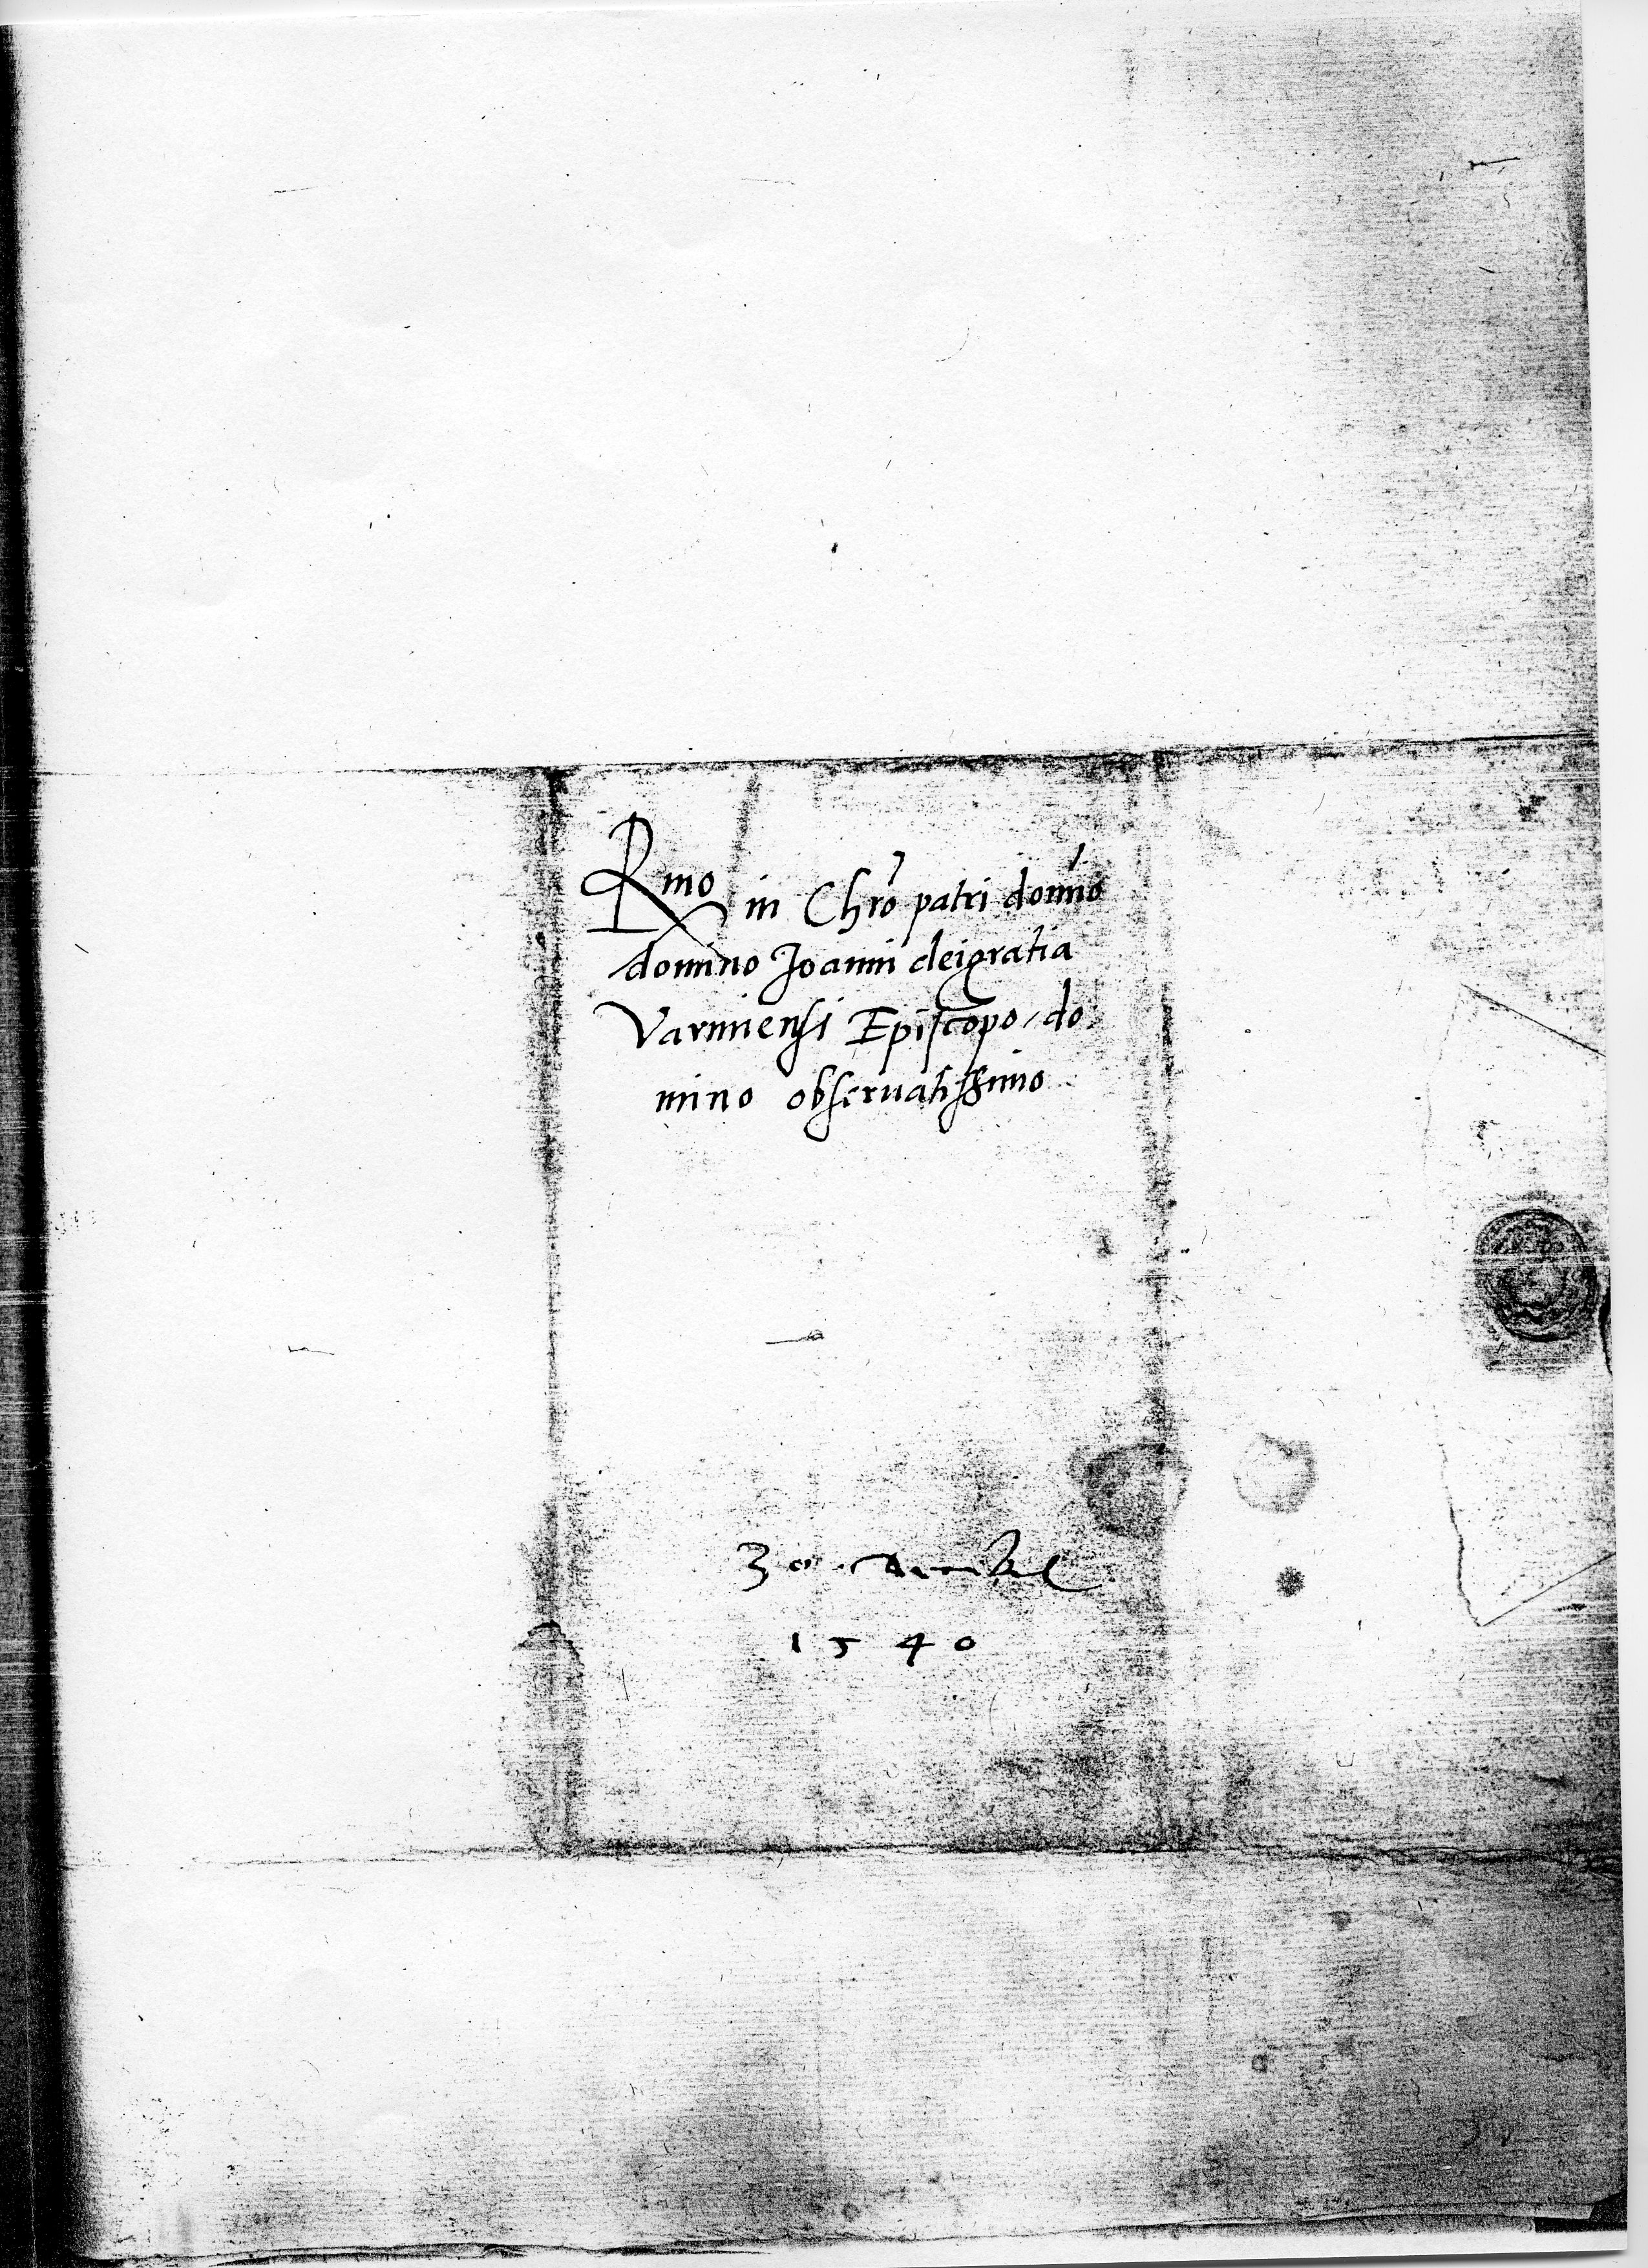 Rmo in Chro patri domno
domino Joanni dei gratia
Varmiensi Episcopo, do
mino obseruatissimo
30
1540